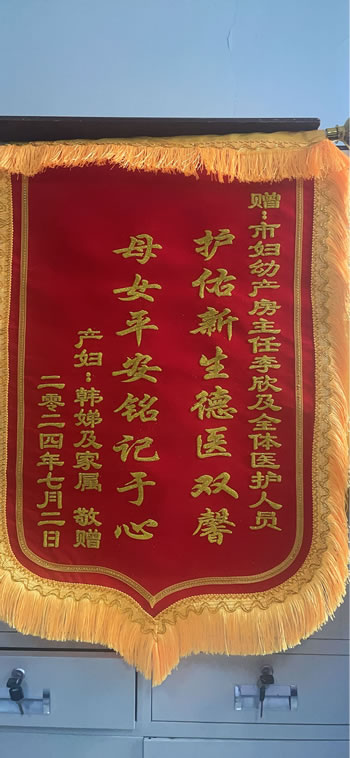 赠：市妇幼产房主任李欣及全体医护人员
护佑新生德医双馨
母女平安铭记于心
产妇：韩娣及家属 敬赠
二零二四年七月二日